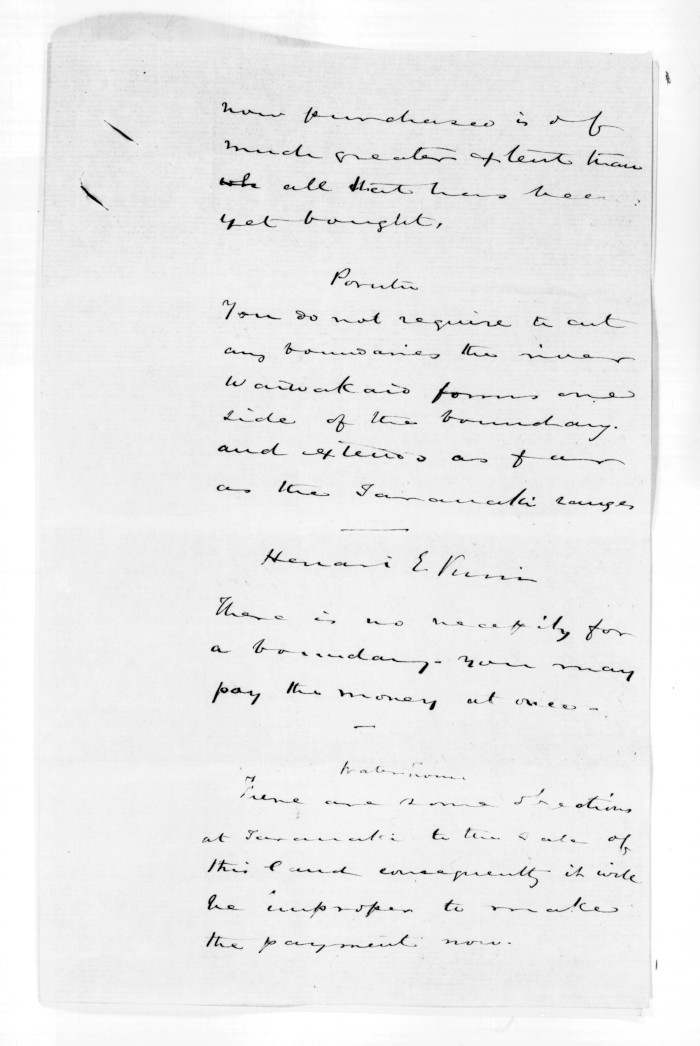 now purchased is of
much greater extent than
wh all that has been
yet bought.
Porutu
You do not require to cut
any boundaries the river
Waiwakaio forms one
side of the boundary.
and extends as far
as the Taranaki ranges
Henari E.
There is no necessity for
a boundary - you may
pay the money at once -
There are some objections
at Taranaki to the sale of
this land consequently it will
be improper to make
the payment now.